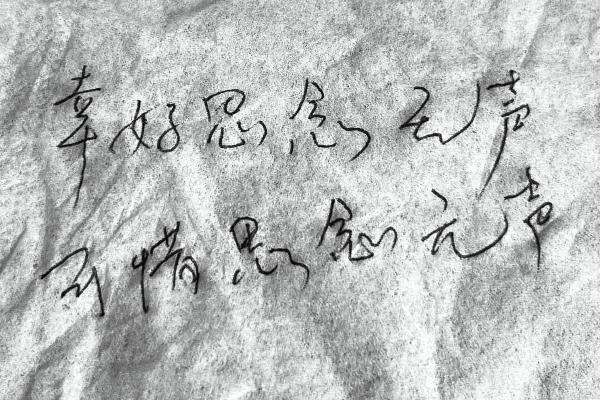 幸好思念无声
可惜思念无声